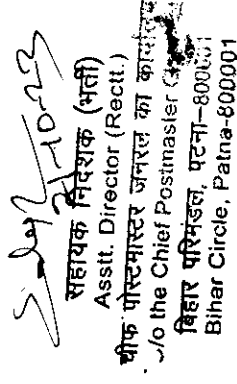 21-10-23
सहायक निदेशक (भर्ती)
Asstt. Director (Rectt.)
चीफ पोस्टमास्टर जनरल का
/o the Chief Postmaster
बिहार परिमंडल, पटना-800001
Bihar Circle, Patna-800001